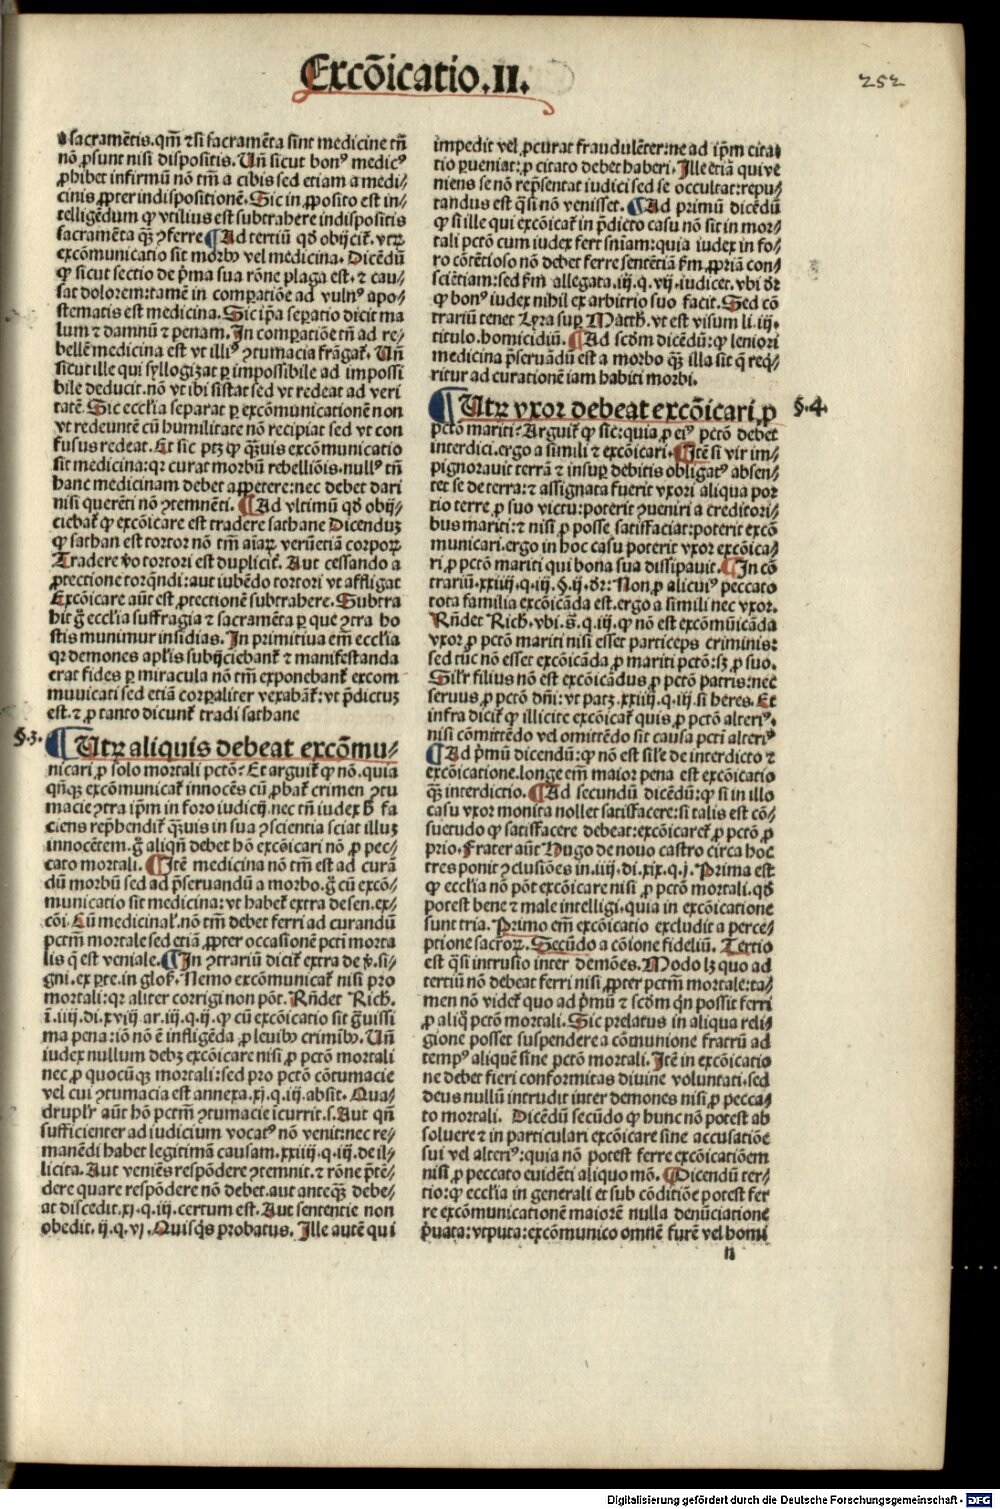 Excōicatio.II.
252
a sacramētis.qm̄ ⁊ si sacramēta sint medicine tn̄
nō ꝓsunt nisi dispositis. Un̄ sicut bonꝰ medicꝰ
ꝓhibet infirmū nō tm̄ a cibis sed etiam a medi/
cinis ꝓpter indispositionē. Sic in ꝓposito est in/
telligēdum ꝙ vtilius est subtrahere indispositis
sacramēta qꝫ ꝯferre ¶Ad tertiū qd̄ obijcit̄. vtꝝ
excōmunicatio sit morbꝰ vel medicina. Dicēdū
ꝙ sicut sectio de p̄ma sua rōne plaga est. ⁊ cau/
sat dolorem:tamē in comꝑatiōe ad vulnꝰ apo/
stematis est medicina. Sic ip̄a seꝑatio dicit ma
lum ⁊ damnū ⁊ penam. In comꝑatiōe tn̄ ad re/
bellē medicina est vt illiꝰ ꝯtumacia frāgat̄. Un̄
sicut ille qui syllogizat ꝑ impossibile ad impossi
bile deducit. nō vt ibi sistat sed vt redeat ad veri
tatē. Sic ecclīa separat ꝑ excōmunicationē non
vt redeuntē cū humilitate nō recipiat sed vt con
fusus redeat. Et sic ptꝫ ꝙ qꝫuis excōmunicatio
sit medicina:qꝛ curat morbū rebelliōis.nullꝰ tn̄
hanc medicinam debet appetere:nec debet dari
nisi querēti nō ꝯtemnēti. ¶Ad vltimū qd̄ obij/
ciebat̄ ꝙ excōicare est tradere sathane Dicenduꝫ
ꝙ sathan est tortor nō tm̄ aīaꝝ verūetiā corpoꝝ
Tradere v̄o tortori est duplicit̄. Aut cessando a
ꝓtectione torqn̄di:aut iubēdo tortori vt affligat
Excōicare aūt est ꝓtectionē subtrahere. Subtra
hit ḡ ecclīa suffragia ⁊ sacramēta ꝑ que ꝯtra ho
stis munimur insidias. In primitiua em̄ ecclīa
qꝛ demones ap̄lis subijciebant̄ ⁊ manifestanda
erat fides ꝑ miracula nō tm̄ exponebant̄ excom
muuicati sed etiā corꝑaliter vexabāt̄:vt p̄dictuꝫ
est. ⁊ ꝓ tanto dicunt̄ tradi sathane
§.3.
¶Utꝝ aliquis debeat excōmu/
nicari ꝓ solo mortali pctō? Et arguit̄ ꝙ nō.quia
qn̄qꝫ excōmunicat̄ innocēs cū ꝓbat̄ crimen ꝯtu
macie ꝯtra ip̄m in foro iudicij.nec tn̄ iudex h̄ fa
ciens rep̄hendit̄ qꝫuis in sua ꝯscientia sciat illuꝫ
innocētem.ḡ aliqn̄ debet hō excōicari nō ꝓ pec/
cato mortali. ¶Itē medicina nō tm̄ est ad curā
dū morbū sed ad p̄seruandū a morbo.ḡ cū excō/
municatio sit medicina:vt habet̄ extra de sen.ex/
cōi. Cū medicinal̄.nō tm̄ debet ferri ad curandū
pctm̄ mortale sed etiā ꝓpter occasionē pcti morta
lis q̄ est veniale. ¶In ꝯtrariū dicit̄ extra de ꝟ.si/
gni.ex ꝑte.in glos̄. Nemo excōmunicat̄ nisi pro
mortali:qꝛ aliter corrigi non pōt. Rn̄det Rich.
ī.iiij.di.xviij ar.iij.q.ij.ꝙ cū excōicatio sit ḡuissi
ma pena riō nō ē infligēda ꝓ leuibꝰ crimibꝰ. Un̄
iudex nullum debꝫ excōicare nisi ꝓ pctō mortali
nec ꝓ quocūqꝫ mortali:sed pro pctō cōtumacie
vel cui ꝯtumacia est annexa.xj.q.iij.absit. Qua/
drupl'r aūt hō pctm̄ ꝯtumacie īcurrit.s.Aut qn̄
sufficienter ad iudicium vocatꝰ nō venit:nec re/
manēdi habet legitimā causam.xxiij.q.iij.de il/
licita. Aut veniēs respōdere ꝯtemnit. ⁊ rōne p̄tē/
dere quare respōdere nō debet.aut anteqꝫ debe/
at discedit.xj.q.iij.certum est. Aut sententie non
obedit.ij.q.vj.Quisq̄s probatus. Ille autē qui
impedit vel ꝓcurat fraudulēter:ne ad ip̄m cita/
tio ꝑueniat:ꝓ citato debet haberi. Ille etiā qui ve
niens se nō rep̄sentat iudici sed se occultat:repu/
tandus est q̄si nō venisset. ¶Ad primū dicēdū
ꝙ si ille qui excōicat̄ in p̄dicto casu nō sit in mor/
tali pctō cum iudex fert sniam:quia iudex in fo/
ro cōtētioso nō debet ferre sentētiā fm̄ ꝓpriā con/
sciētiam:sed fm̄ allegata.iij.q.vij.iudicet.vbi dr̄
ꝙ bonꝰ iudex nihil ex arbitrio suo facit. Sed cō
trariū tenet Lyra suꝑ Matth.vt est visum li.iij.
titulo.homicidiū. ¶Ad scd̄m dicēdū:ꝙ leniori
medicina p̄seruandū est a morbo qꝫ illa sit q̄ req̄/
ritur ad curationē iam habiti morbi.
¶Utꝝ vxor debeat excōicari ꝓ §.4.
pctō mariti? Arguit̄ ꝙ sic:quia ꝓ eiꝰ pctō debet
interdici.ergo a simili ⁊ excōicari. ¶Itē si vir im/
pignorauit terrā ⁊ insuꝑ debitis obligatꝰ absen/
tet se de terra:⁊ assignata fuerit vxori aliqua por
tio terre ꝓ suo victu:poterit ꝯueniri a creditori/
bus mariti:⁊ nisi ꝓ posse satisfaciat:poterit excō
municari.ergo in hoc casu poterit vxor excōica/
ri ꝓ pctō mariti qui bona sua dissipauit. ¶In cō
trariū.xxiiij.q.iij.§.ij.dr̄:Non ꝓ alicuiꝰ peccato
tota familia excōicāda est.ergo a simili nec vxor.
Rn̄det Rich.vbi.s̄.q.iij.ꝙ nō est excōmūicāda
vxor ꝓ pctō mariti nisi esset particeps criminis:
sed tūc nō esset excōicāda ꝓ mariti pctō:sꝫ ꝓ suo.
Sil'r filius nō est excōicādus ꝓ pctō patris:nec
seruus ꝓ pctō dn̄i:vt patꝫ.xxiiij.q.iij.si heres. Et
infra dicit̄ ꝙ illicite excōicat̄ quis ꝓ pctō alteriꝰ.
nisi cōmittēdo vel omittēdo sit causa pcti alteriꝰ
¶Ad p̄mū dicendū:ꝙ nō est sil'e de interdicto ⁊
excōicatione.longe em̄ maior pena est excōicatio
qꝫ interdictio. ¶Ad secundū dicēdū:ꝙ si in illo
casu vxor monita nollet satisfacere:si talis est cō/
suetudo ꝙ satisfacere debeat:excōicaret̄ ꝓ pctō ꝓ
prio.Frater aūt Hugo de nouo castro circa hoc
tres ponit ꝯclusiōes in.iiij.di.xix.q.j. Prima est
ꝙ ecclīa nō pōt excōicare nisi ꝓ pctō mortali.qd̄
potest bene ⁊ male intelligi.quia in excōicatione
sunt tria. Primo em̄ excōicatio excludit a perce/
ptione sacroꝝ. Secūdo a cōione fidelium. Tertio
est q̄si intrusio inter demōes. Modo lꝫ quo ad
tertiū nō debeat ferri nisi ꝓpter pctm̄ mortale:ta/
men nō videt̄ quo ad p̄mū ⁊ scd̄m qn̄ possit ferri
ꝓ aliq̄ pctō mortali. Sic prelatus in aliqua reli/
gione posset suspendere a cōmunione fratrū ad
tempꝰ aliquē sine pctō mortali. Itē in excōicatio
ne debet fieri conformitas diuine voluntati.sed
deus nullū intrudit inter demones nisi ꝓ pecca/
to mortali. Dicēdū secūdo ꝙ hunc nō potest ab
soluere ⁊ in particulari excōicare sine accusatiōe
sui vel alteriꝰ:quia nō potest ferre excōicatiōem
nisi ꝓ peccato euidēti aliquo mō. ¶Dicendū ter/
tio:ꝙ ecclīa in generali et sub cōditiōe potest fer
re excōmunicationē maiorē nulla denūciatione
p̄uata:vtputa:excōmunico omnē furē vel homi
n
Digitalisierung gefördert durch die Deutsche Forschungsgemeinschaft - DFG